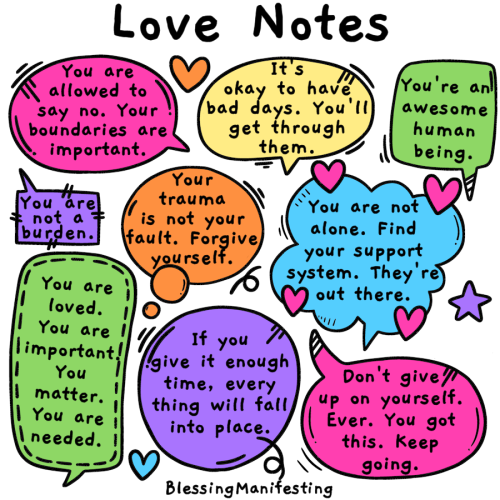 Love Notes
You are
allowed to
say no. Your
boundaries are
important.
It's
okay to have
bad days. You'll
get through
them.
You're an
awesome
human
being.
You are
not a
burden.
Your
trauma
is not your
fault. Forgive
yourself.
You are not
alone. Find
your support
system. They're
out there.
You are
loved.
You are
important
You
matter.
You are
needed.
If you
give it enough
time, every
thing will fall
into place.
Don't give
up on yourself.
Ever. You got
this. Keep
going.
BlessingManifesting